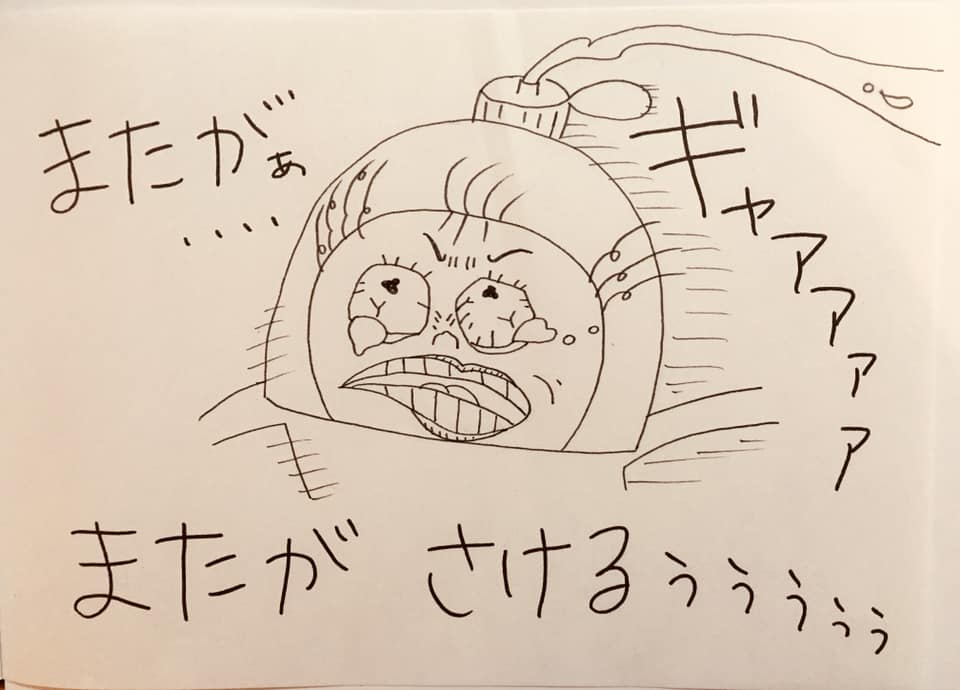 またがぁ
‥‥
ギャアアアア
またが さけるぅぅぅぅぅ